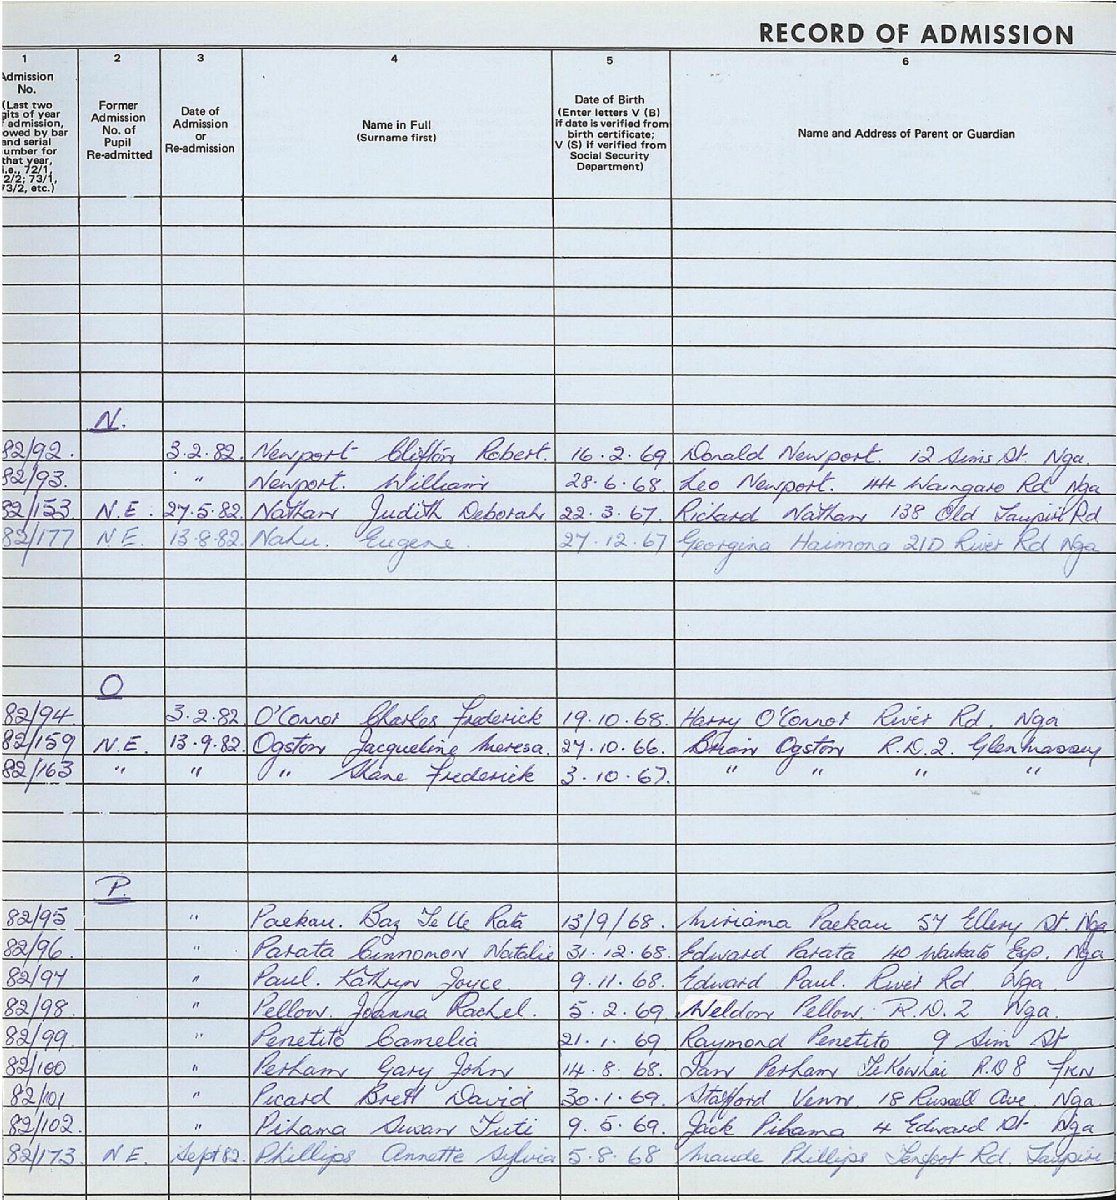 RECORD OF ADMISSION
1 2 3 4 5 6
Admission No. (Last two digits of year of admission, followed by bar and serial number for that year, i.e., 72/1, 72/2; 73/1, 73/2, etc.)
Former Admission No. of Pupil Re-admitted
Date of Admission or Re-admission
Name in Full (Surname first)
Date of Birth (Enter letters V (B) if date is verified from birth certificate; V (S) if verified from Social Security Department)
Name and Address of Parent or Guardian
N.
82/92. 3.2.82. Newport Clifton Robert. 16.2.69 Donald Newport. 12 Sims St. Nga.
82/93. " Newport. William 28.6.68. Leo Newport. 144 Waingaro Rd Nga
82/153 N.E. 27.5.82. Nathan Judith Deborah 22.3.67. Richard Nathan 138 Old Taupiri Rd
82/177 N.E. 13.8.82. Nahu. Eugene. 27.12.67 Georgina Haimona 21D River Rd Nga
O
82/94. 3.2.82 O'Connor Charles Frederick 19.10.68. Harry O'Connor River Rd. Nga
82/159 N.E. 13.9.82. Ogston Jacqueline Theresa. 27.10.66. Brian Ogston R.D.2. Glen Massey
82/163 " " " Shane Frederick 3.10.67. " " " "
P.
82/95 " Paekau. Baz Te Ua Rata 13/9/68. Miriama Paekau 57 Ellery St. Nga
82/96. " Parata Cinnamon Natalie 31.12.68. Edward Parata 40 Waikato Esp. Nga
82/97 " Paul. Kathryn Joyce. 9.11.68. Edward Paul. River Rd Nga.
82/98. " Pellow. Joanna Rachel. 5.2.69. Weldon Pellow. R.D.2 Nga.
82/99. " Penetito Camelia 21.1.69 Raymond Penetito 9 Sim St
82/100 " Perham Gary John 14.8.68. Ian Perham Te Kowhai R.D 8
82/101 " Picard Brett David 30.1.69. Stafford Venn. 18 Russell Ave. Nga
82/102. " Pihama Susan Tuti 9.5.69. Jack Pihama 4 Edward St. Nga
82/173. N.E. Sept 82. Phillips Annette Sylvia 5.8.68 Maude Phillips Rd. Taupiri